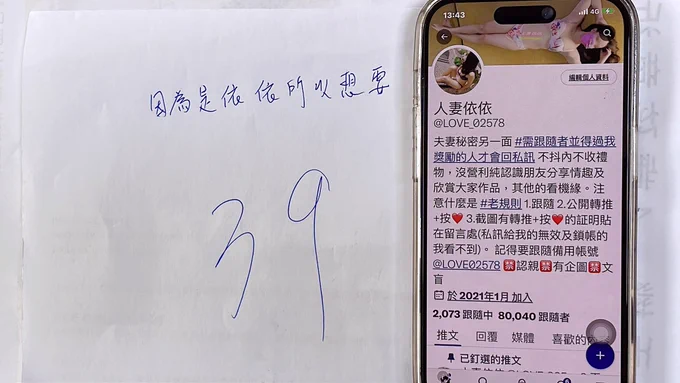 因為是依依所以想要
39
13:43
4G
編輯個人資料
人妻依依
@LOVE_02578
夫妻秘密另一面 #需跟隨者並得過我
獎勵的人才會回私訊 不抖內不收禮
物，沒營利純認識朋友分享情趣及
欣賞大家作品，其他的看機緣。注
意什麼是 #老規則 1.跟隨 2.公開轉推
+按❤️ 3.截圖有轉推+按❤️的証明貼
在留言處(私訊給我的無效及鎖帳的
我看不到)。 記得要跟隨備用帳號
@LOVE02578 🈲認親🈲有企圖🈲文
盲
於 2021年1月 加入
2,073 跟隨中 80,040 跟隨者
推文 回覆 媒體 喜歡的
已釘選的推文